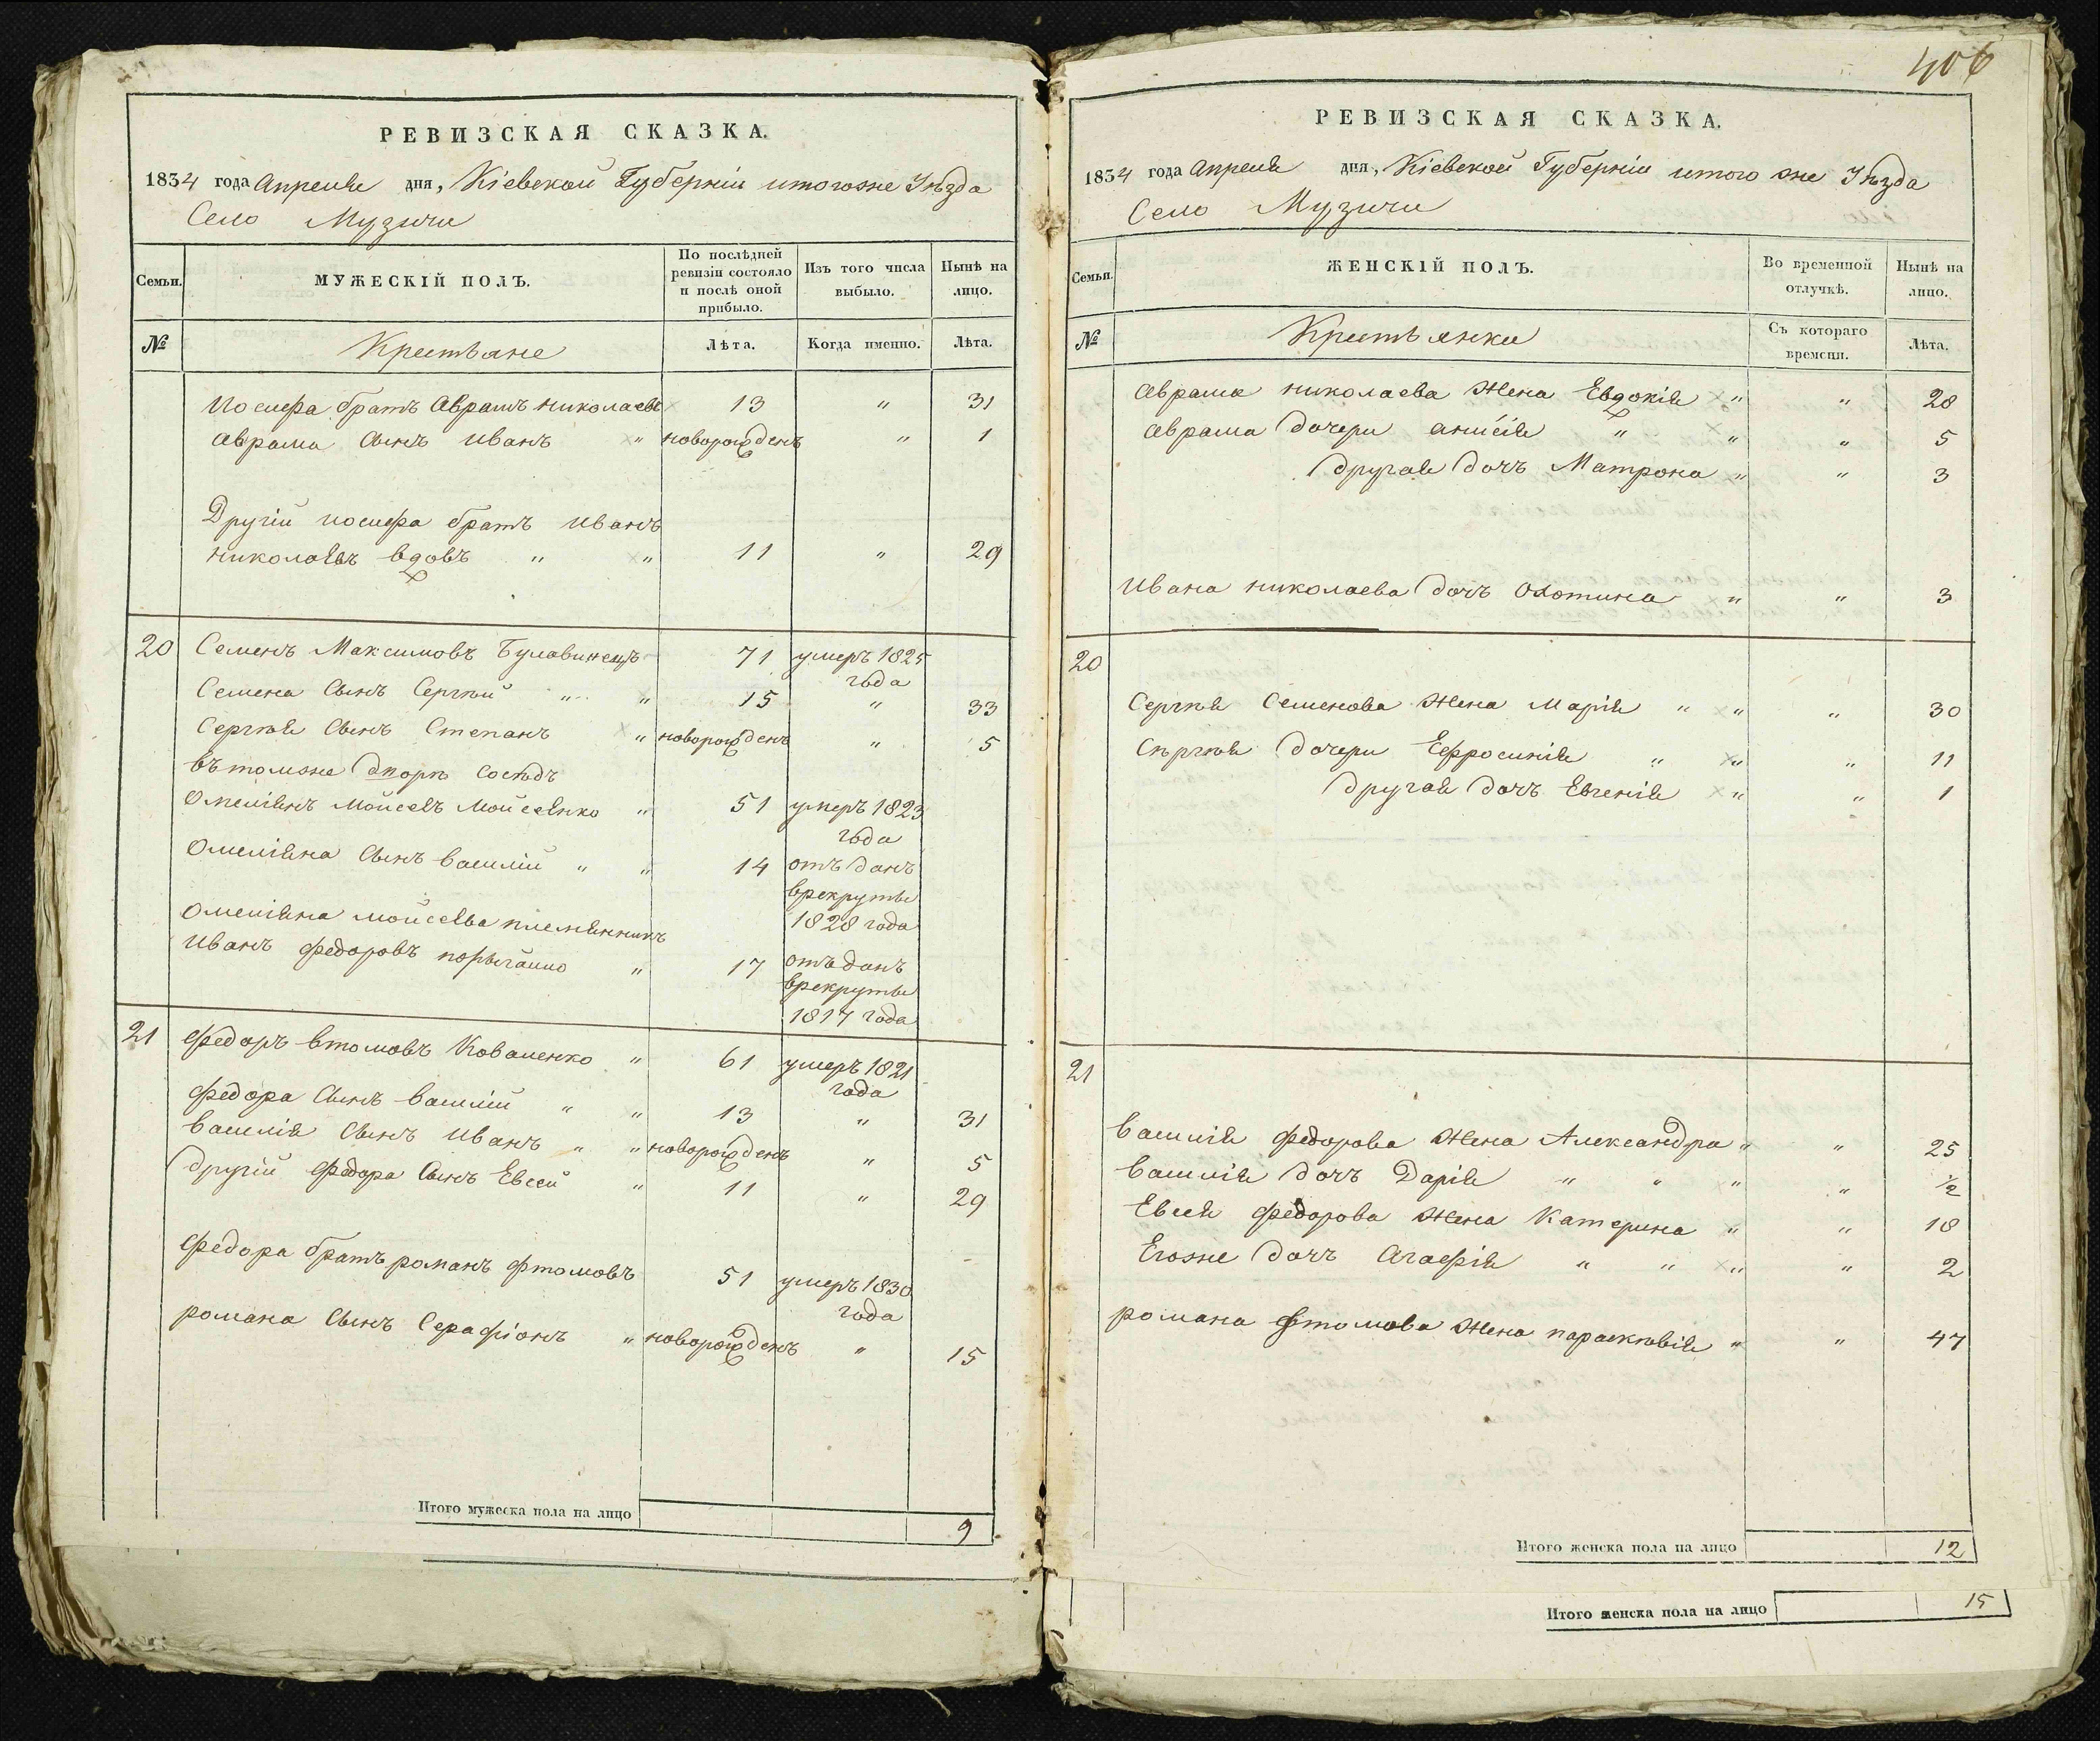 РЕВИЗСКАЯ СКАЗКА.
1834 года Апреля дня, Кіевской Губерніи итогоже Уѣзда
Село Музичи
Семьи.
МУЖЕСКІЙ ПОЛЪ.
По послѣдней ревизіи состояло и послѣ оной прибыло.
Изъ того числа выбыло.
Нынѣ на лицо.
№
Крестьяне
Лѣта.
Когда именно.
Лѣта.
Иосифа братъ Аврамъ николаевъ 13 " 31
Аврама Сынъ Иванъ " новорожденъ " 1
Другій иосифа братъ Иванъ
николаевъ вдовъ " " 11 " 29
20 Семенъ Максимовъ Булавинецъ 71 умеръ 1825
года
Семена Сынъ Сергѣй " " 15 " 33
Сергѣя Сынъ Степанъ " новорожденъ " 5
вътомже дворѣ Сосѣдъ
Омеліянъ Мойсеевъ Мойсеенко " 51 умеръ 1823
года
Омеліяна Сынъ василій " " 14 отъданъ
врекруты
1828 года
Омеліяна мойсеева племянникъ
Иванъ федоровъ " 17 отъданъ
врекруты
1817 года
21 федоръ Коваленко " 61 умеръ 1821
года
федора Сынъ василій " " 13 " 31
василія Сынъ Иванъ " " новорожденъ " 5
другій федора Сынъ Евсей " 11 " 29
федора братъ романъ фтомовъ 51 умеръ 1830
года
романа Сынъ Серафіонъ " новорожденъ " 15
Итого мужеска пола на лицо 9
406
РЕВИЗСКАЯ СКАЗКА.
1834 года Апреля дня, Кіевской Губерніи итого же Уѣзда
Село Музичи
Семьи.
ЖЕНСКІЙ ПОЛЪ.
Во временной отлучкѣ.
Нынѣ на лицо.
№
Крестьянки
Съ котораго времени.
Лѣта.
Аврама николаева Жена Евдокія " " 28
Аврама дочери анисія " " " 5
другая дочъ Матрона " " 3
Ивана николаева дочъ Охотина " " 3
20
Сергѣя Семенова Жена Марія " " " 30
Сергѣя дочери Ефросинія " " " 11
другая дочъ Евгенія " " 1
21
василія федорова Жена Александра " " 25
василія дочъ Дарія " " " " 1/2
Евсея федорова Жена Катерина " " 18
Егоже дочъ Агафія " " " " 2
романа фтомова Жена параскѣвія " " 47
Итого женска пола на лицо 12
Итого женска пола на лицо 15